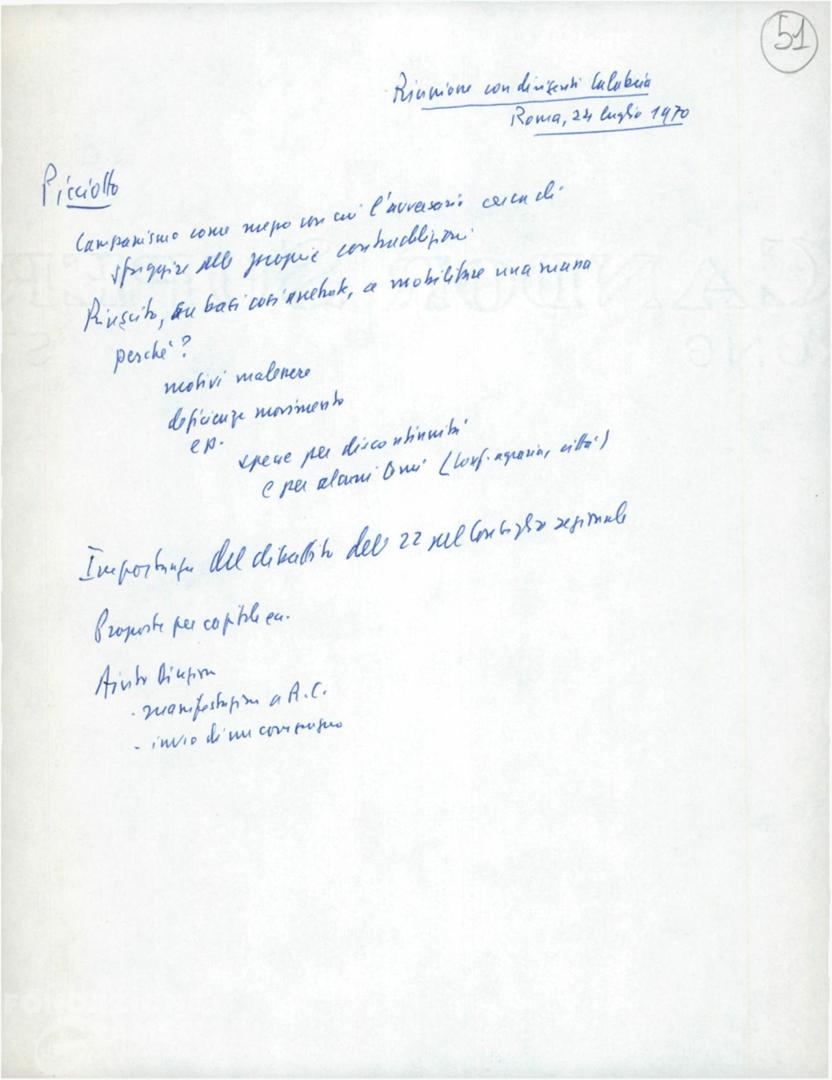 51
Riunione con dirigenti Calabria
Roma, 24 luglio 1970
Picciotto
Campanismo come mezzo con cui l'avversario cerca di
sfuggire alle proprie contraddizioni
Riuscito, su basi così arretrate, a mobilitare una massa
perché?
motivi malessere
deficienze movimento
e p.
specie per discontinuità
e per alcuni temi (Conf. agraria, città)
Importanza del dibattito del 22 nel Consiglio regionale
Proposte per capitale ca.
Aiuto Direzione
- manifestazione a R.C.
- invio di un compagno
FONDAZIONE